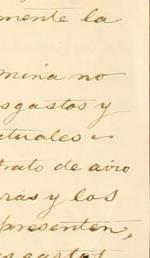 mente la
mina no
sgastos y
ctuales
trato de avio
ras y los
presenten,
s gastos